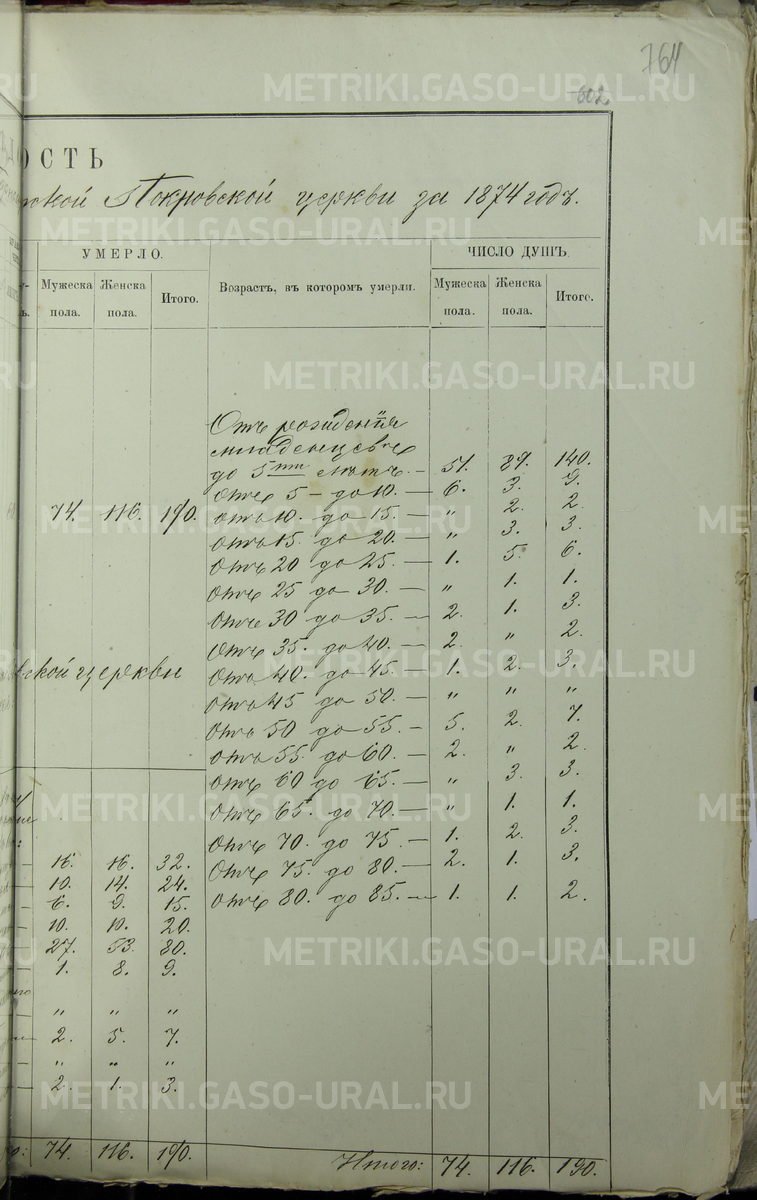 764
602
ОСТЬ
Покровской церкви за 1874 годъ.
УМЕРЛО.
ЧИСЛО ДУШЪ.
Мужеска пола. Женска пола. Итого. Возрастъ, въ которомъ умерли. Мужеска пола. Женска пола. Итого.
Отъ рожденія
младенцевъ
до 5ти лѣтъ. — 51. 89. 140.
Отъ 5 — до 10. — 6. 3. 9.
74. 116. 190. отъ 10. до 15. — " 2. 2.
отъ 15 до 20. — " 3. 3.
отъ 20 до 25. — 1. 5. 6.
отъ 25 до 30. — " 1. 1.
отъ 30 до 35. — 2. 1. 3.
отъ 35. до 40. — 2. " 2.
ской церкви отъ 40. до 45. — 1. 2. 3.
отъ 45 до 50. — " " "
отъ 50 до 55. — 5. 2. 7.
отъ 55. до 60. — 2. " 2.
отъ 60 до 65. — " 3. 3.
отъ 65. до 70. — " 1. 1.
отъ 70. до 75. — 1. 2. 3.
16. 16. 32. отъ 75. до 80. — 2. 1. 3.
10. 14. 24.
6. 9. 15. отъ 80. до 85. — 1. 1. 2.
10. 10. 20.
27. 53. 80.
1. 8. 9.
" " "
2. 5. 7.
" " "
2. 1. 3.
74. 116. 190. Итого: 74. 116. 190.
METRIKI.GASO-URAL.RU